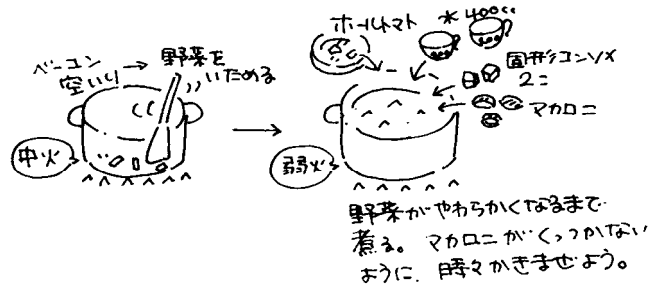 ベーコン
空いり → 野菜を
いためる
中火
ホールトマト
水400cc
固形コンソメ
2コ
マカロニ
弱火
野菜がやわらかくなるまで
煮る。マカロニがくっつかない
ように、時々かきまぜよう。